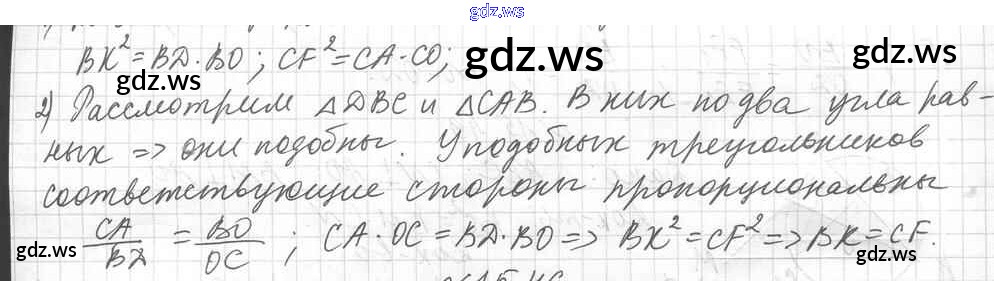 gdz.ws
BK² = BД·BO; CF² = CA·CO;
gdz.ws gdz.ws gdz.ws
2) Рассмотрим △ДBC и △CAB. В них по два угла рав-
ных => они подобны. У подобных треугольников
соответствующие стороны пропорциональны
CA/BД = BO/OC; CA·OC = BД·BO => BK² = CF² => BK = CF.
gdz.ws gdz.ws gdz.ws